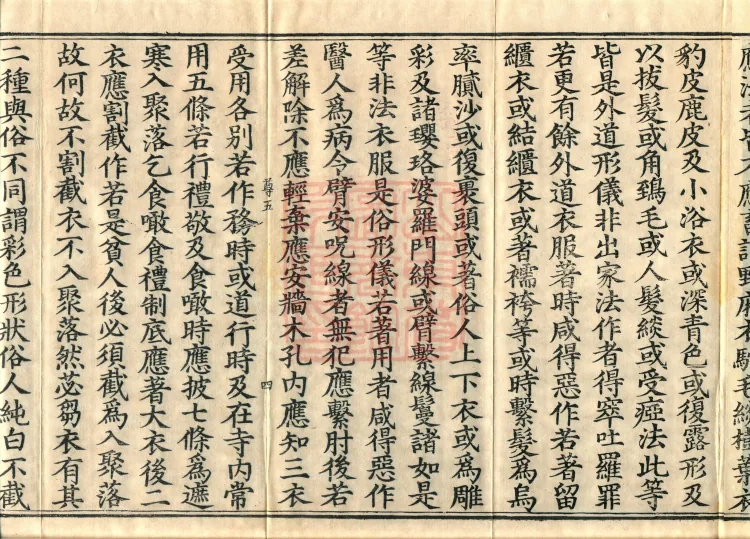 豹皮鹿皮及小浴衣或深青色或復露形及
以拔髮或角鵄毛或人髮緂或受瘂法此等
皆是外道形儀非出家法作者得窣吐羅罪
若更有餘外道衣服著時咸得惡作若著留
纈衣或結纈衣或著襦袴等或時繫髮爲烏
率膩沙或復裹頭或著俗人上下衣或爲雕
彩及諸瓔珞婆羅門線或臂繫線鬘諸如是
等非法衣服是俗形儀若著用者咸得惡作
醫人爲病令臂安呪線者無犯應繫肘後若
差解除不應輕棄應安牆木孔內應知三衣
尊五
四
受用各別若作務時或道行時及在寺內常
用五條若行禮敬及食噉時應披七條爲遮
寒入聚落乞食噉食禮制底應著大衣後二
衣應割截作若是貧人後必須截爲入聚落
故何故不割截衣不入聚落然苾芻衣有其
二種與俗不同謂彩色形狀俗人純白不截